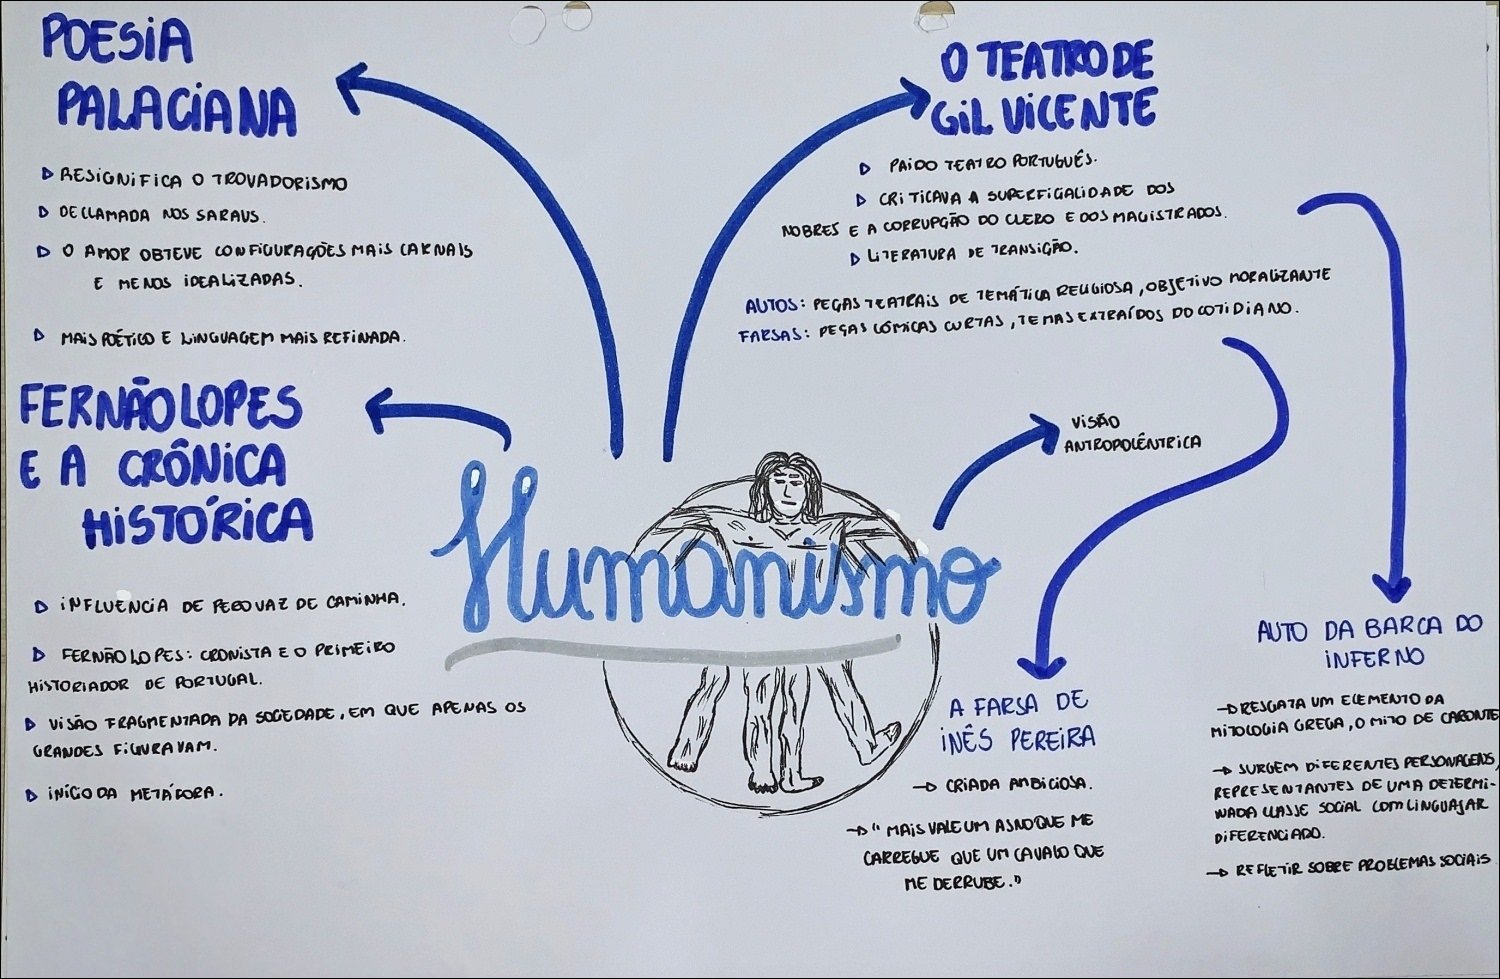 POESIA
PALACIANA
RESIGNIFICA O TROVADORISMO
DECLAMADA NOS SARAUS.
O AMOR OBTEVE CONFIGURAÇÕES MAIS CARNAIS
E MENOS IDEALIZADAS.
MAIS POÉTICO E LINGUAGEM MAIS REFINADA.
FERNÃO LOPES
E A CRÔNICA
HISTÓRICA
INFLUENCIA DE PERO VAZ DE CAMINHA.
FERNÃO LOPES: CRONISTA E O PRIMEIRO
HISTORIADOR DE PORTUGAL.
VISÃO FRAGMENTADA DA SOCIEDADE, EM QUE APENAS OS
GRANDES FIGURAVAM.
INÍCIO DA METÁFORA.
Humanismo
O TEATRO DE
GIL VICENTE
PAI DO TEATRO PORTUGUÊS.
CRITICAVA A SUPERFICIALIDADE DOS
NOBRES E A CORRUPÇÃO DO CLERO E DOS MAGISTRADOS.
LITERATURA DE TRANSIÇÃO.
AUTOS: PEÇAS TEATRAIS DE TEMÁTICA RELIGIOSA, OBJETIVO MORALIZANTE
FARSAS: PEÇAS CÔMICAS CURTAS, TEMAS EXTRAÍDOS DO COTIDIANO.
VISÃO
ANTROPOCÊNTRICA
A FARSA DE
INÊS PEREIRA
CRIADA AMBICIOSA.
"MAIS VALE UM ASNO QUE ME
CARREGUE QUE UM CAVALO QUE
ME DERRUBE."
AUTO DA BARCA DO
INFERNO
RESGATA UM ELEMENTO DA
MITOLOGIA GREGA, O MITO DE CARONTE
SURGEM DIFERENTES PERSONAGENS,
REPRESENTANTES DE UMA DETERMI-
NADA CLASSE SOCIAL COM LINGUAJAR
DIFERENCIADO.
REFLETIR SOBRE PROBLEMAS SOCIAIS